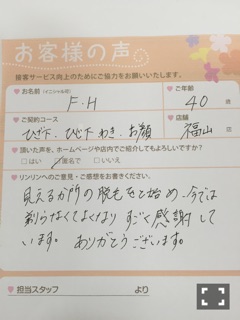 お客様の声
接客サービス向上のためにご協力をお願いいたします。
お名前(イニシャル可)
F.H
ご年齢
40 歳
ご契約コース
ひざ下、ひじ下 わき、お顔
店舗
福山 店
頂いた声を、ホームページや店内でご紹介してもよろしいですか？
□はい □匿名で □いいえ
リンリンへのご意見・ご感想をお書きください。
見えるか所の脱毛をと始め、今では
剃らなくてよくなり すごく感謝して
います。 ありがとうございます。
担当スタッフ より